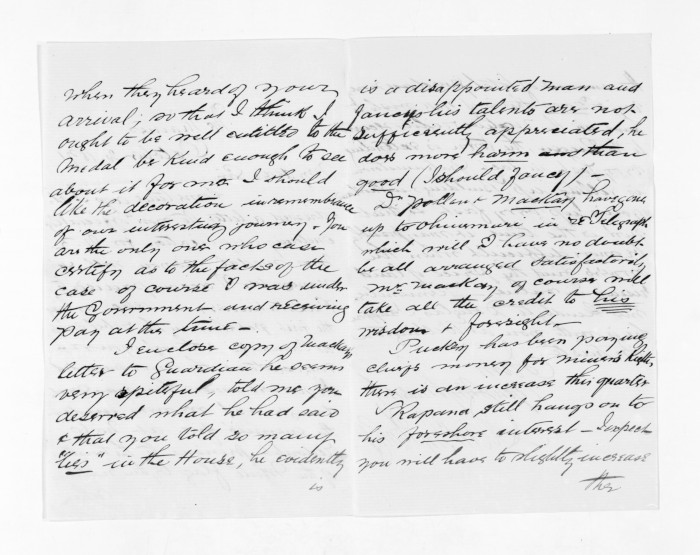 when they heard of your
arrival; so that I think I
ought to be well entitled to the
Medal be kind enough to see
about it for me I should
like the decoration in remembrance
of our interesting journey. You
are the only one who can
certify as to the facts of the
case of course I was under
the Government and receiving
pay at the time —
I enclose copy of Mackays
letter to Guardian he seems
very spiteful, told me you
deserved what he had said
& that you told so many
"lies" in the House, he evidently
is
is a disappointed man and
fancys his talents are not
sufficiently appreciated, he
does more harm than
good (I should fancy) —
Dr Pollen & Mackay have gone
up to Ohinemuri in re Telegraph
which will I have no doubt
be all arranged satisfactorily
Mr Mackay of course will
take all the credit to his
wisdom & foresight —
Puckey has been paying
chiefs money for miners Rights,
there is an increase this quarter
Rapana still hangs on to
his foreshore interest — I expect
you will have to slightly increase
the